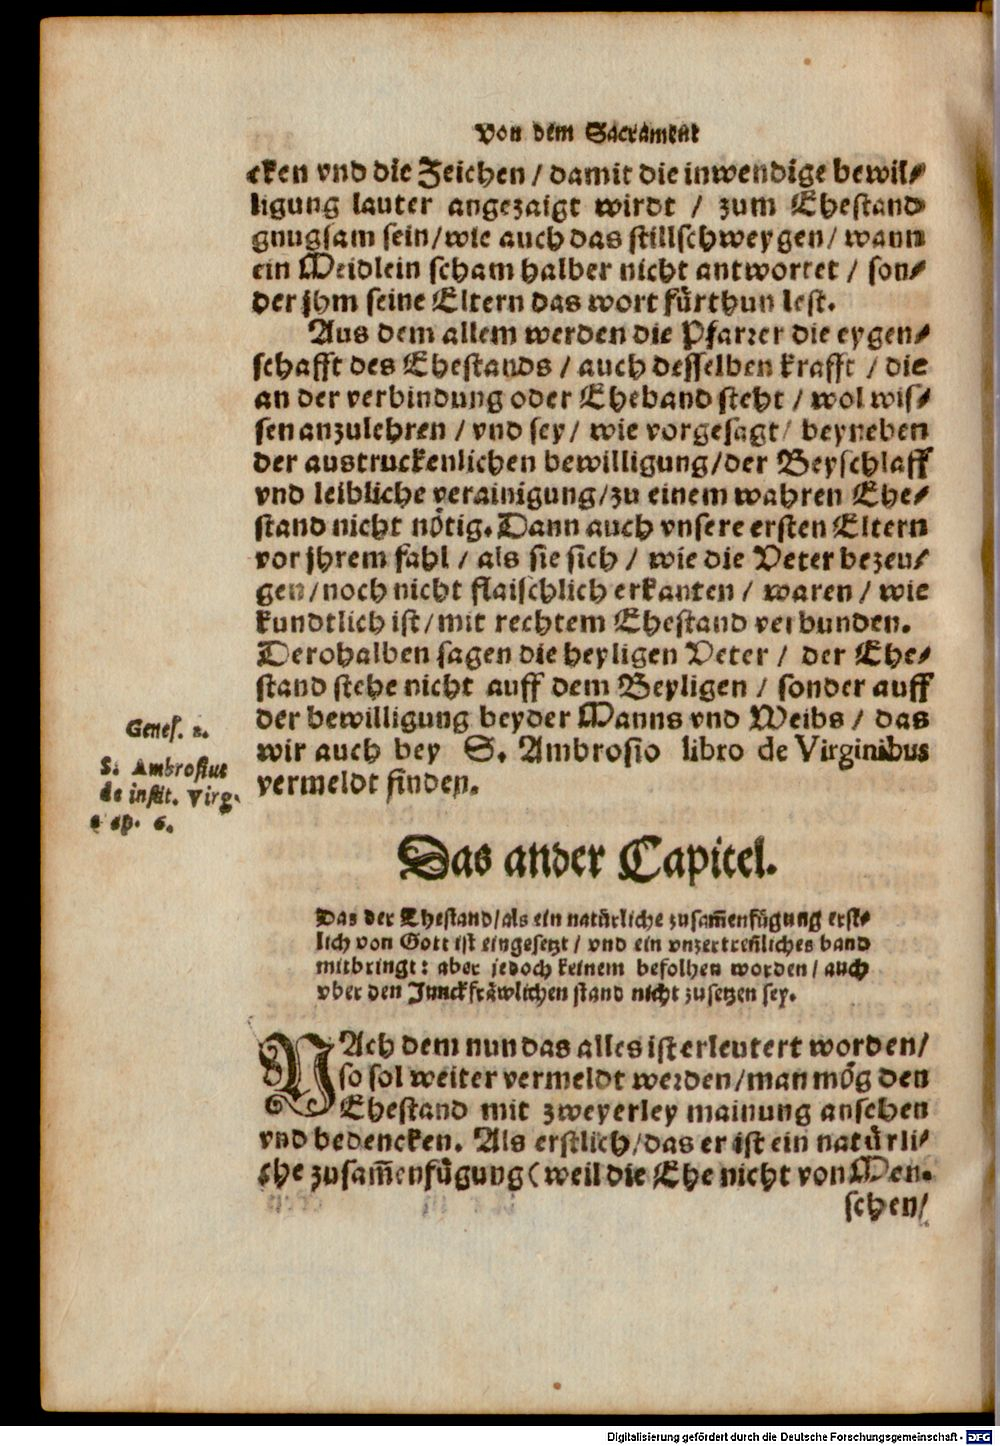 Von dem Sacrament
cken vnd die Zeichen / damit die inwendige bewil⸗
ligung lauter angezaigt wirdt / zum Ehestand
gnugsam sein/wie auch das stillschweygen/ wann
ein Meidlein scham halber nicht antwortet / son⸗
der jhm seine Eltern das wort fürthun lest.
Aus dem allem werden die Pfarrer die eygen⸗
schafft des Ehestands / auch desselben krafft / die
an der verbindung oder Eheband steht / wol wis⸗
sen anzulehren / vnd sey/ wie vorgesagt/ beyneben
der austruckenlichen bewilligung/der Beyschlaff
vnd leibliche verainigung/zu einem wahren Ehe⸗
stand nicht nötig. Dann auch vnsere ersten Eltern
vor jhrem fahl / als sie sich / wie die Veter bezeu⸗
gen/noch nicht flaischlich erkanten / waren / wie
kundtlich ist/mit rechtem Ehestand verbunden.
Derohalben sagen die heyligen Veter / der Ehe⸗
stand stehe nicht auff dem Beyligen / sonder auff
der bewilligung beyder Manns vnd Weibs / das
wir auch bey S. Ambrosio libro de Virginibus
vermeldt finden.
Genes. 2.
S. Ambrosius
de instit. Virg.
cap. 6.
Das ander Capitel.
Das der Ehestand/als ein natürliche zusam̅enfügung erst⸗
lich von Gott ist eingesetzt / vnd ein vnzertren̅liches band
mitbringt: aber jedoch keinem befolhen worden / auch
vber den Junckfräwlichen stand nicht zusetzen sey.
NAch dem nun das alles ist erleutert worden/
so sol weiter vermeldt werden/man mög den
Ehestand mit zweyerley mainung ansehen
vnd bedencken. Als erstlich/das er ist ein natürli⸗
che zusam̅enfügung (weil die Ehe nicht von Men⸗
schen/
Digitalisierung gefördert durch die Deutsche Forschungsgemeinschaft - DFG